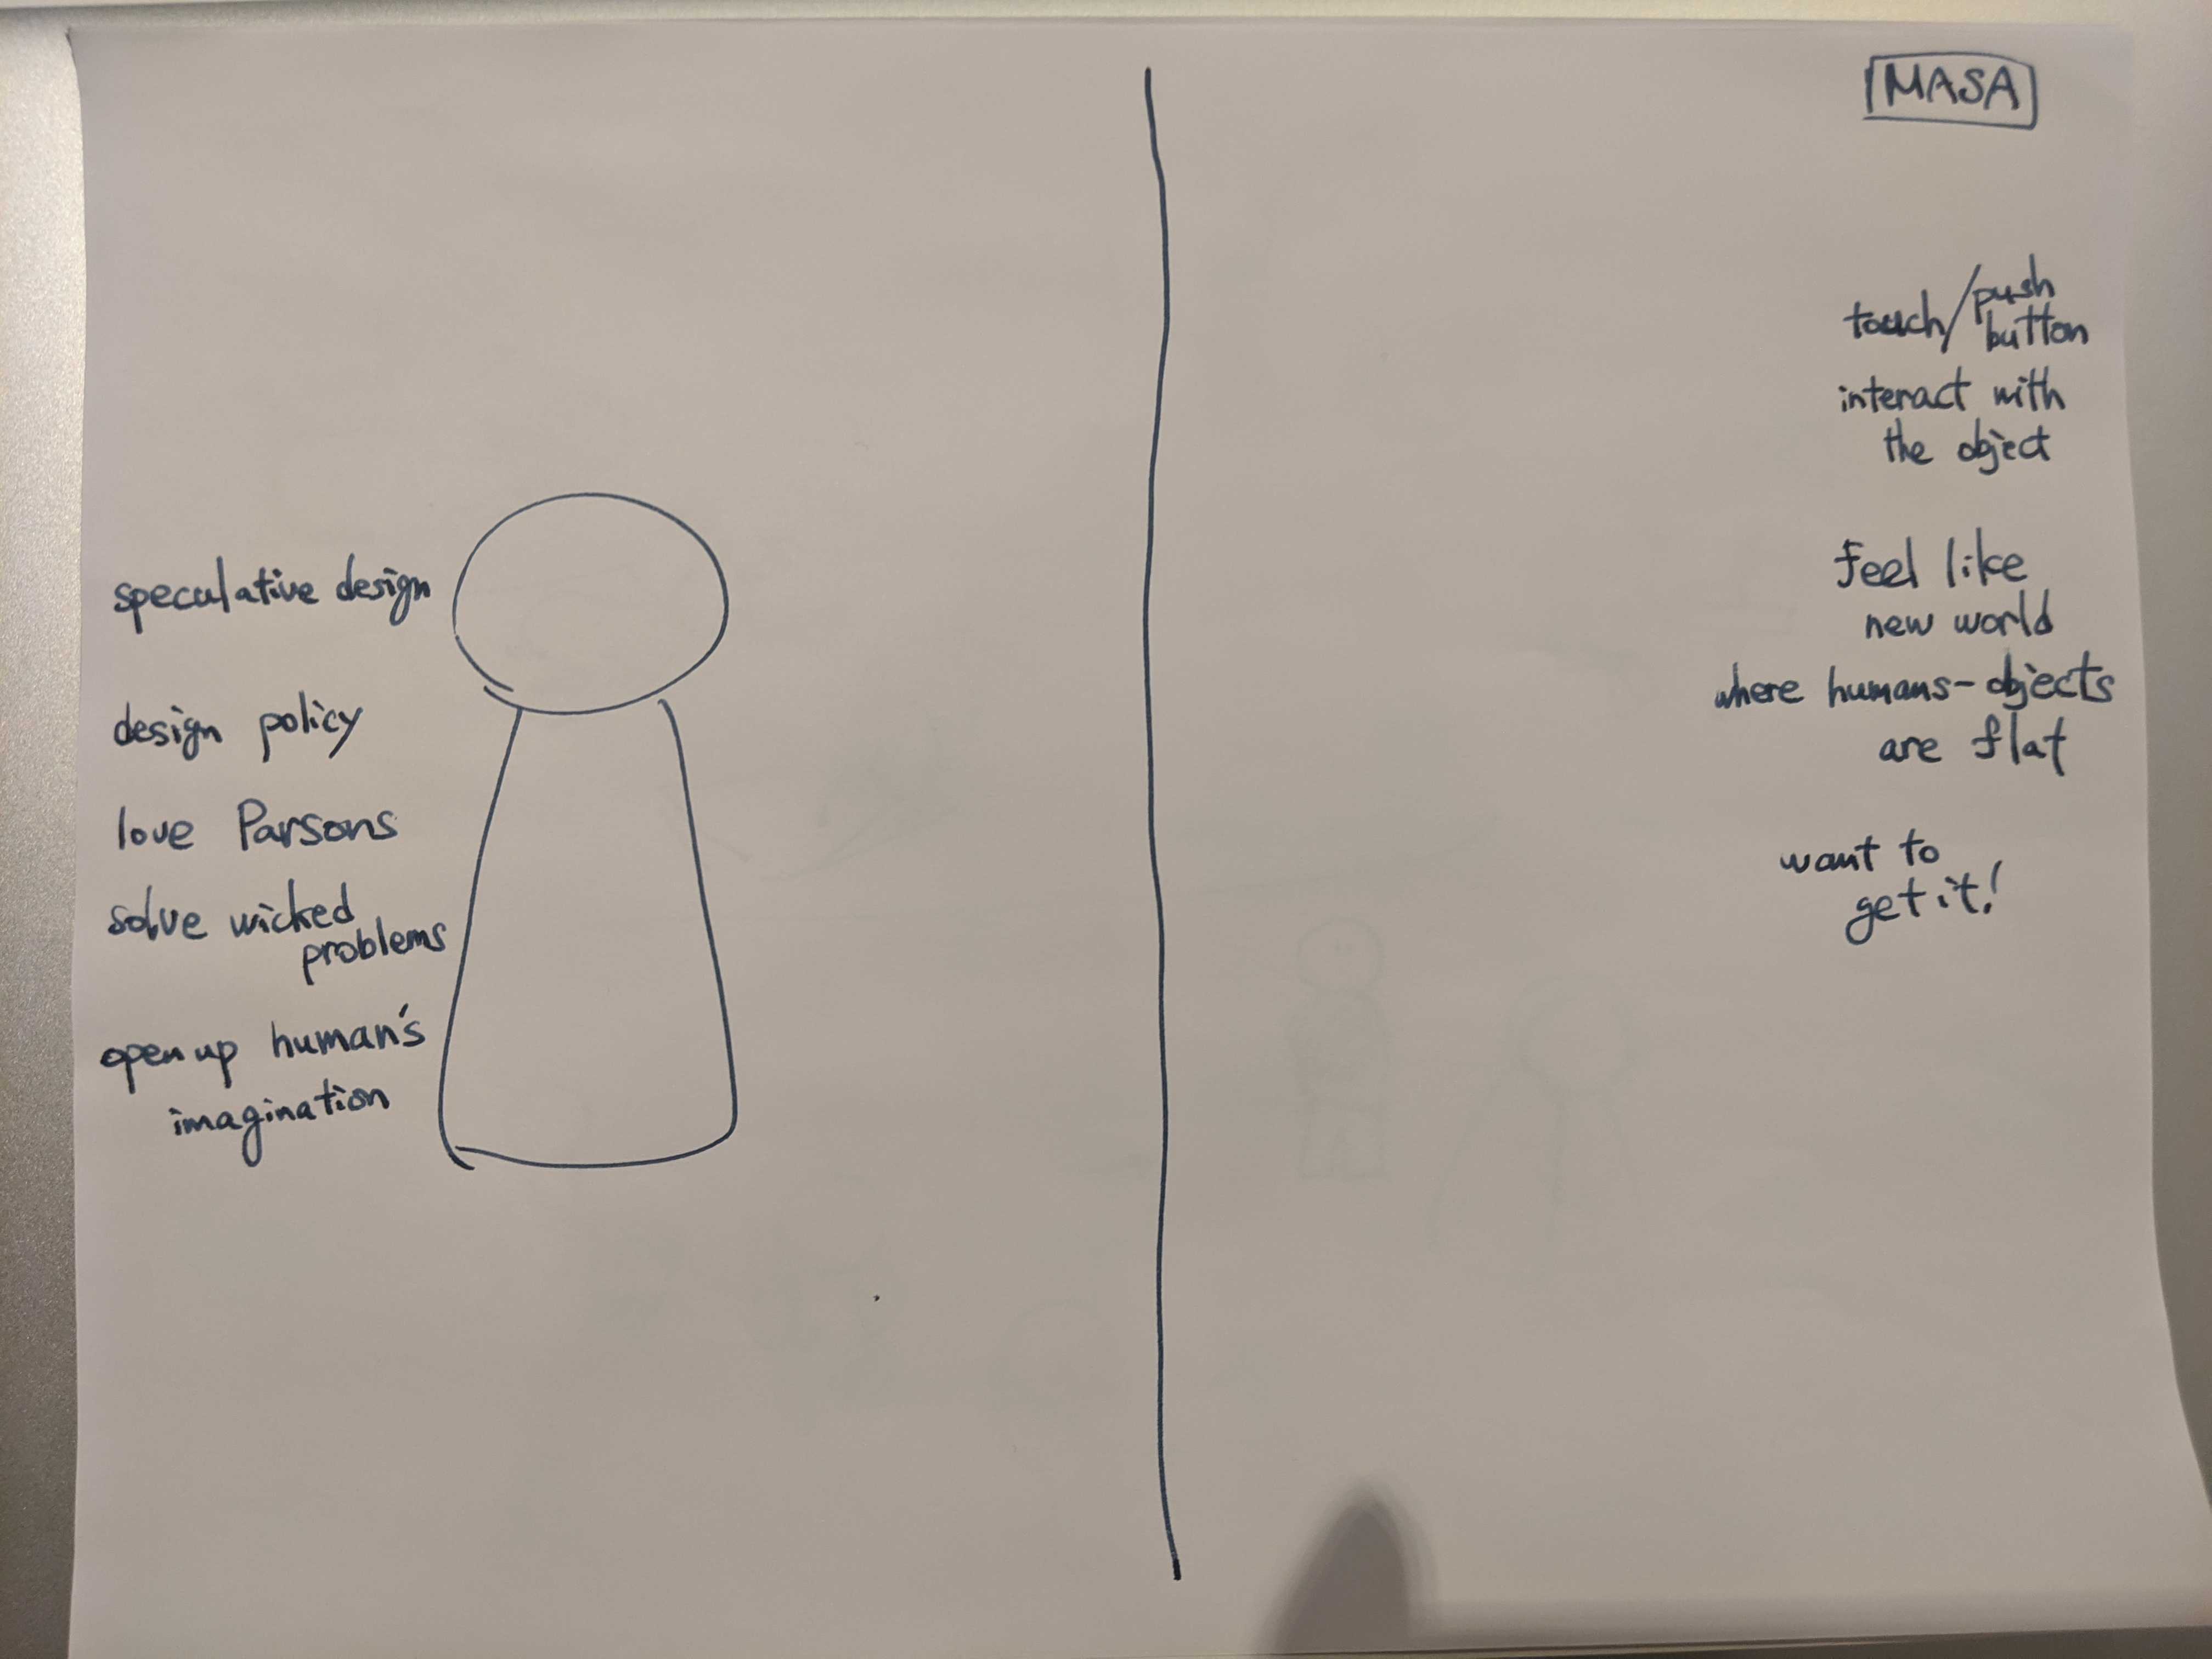 MASA
speculative design
design policy
love Parsons
solve wicked
problems
open up human's
imagination
touch/push
button
interact with
the object
feel like
new world
where humans-objects
are flat
want to
get it!